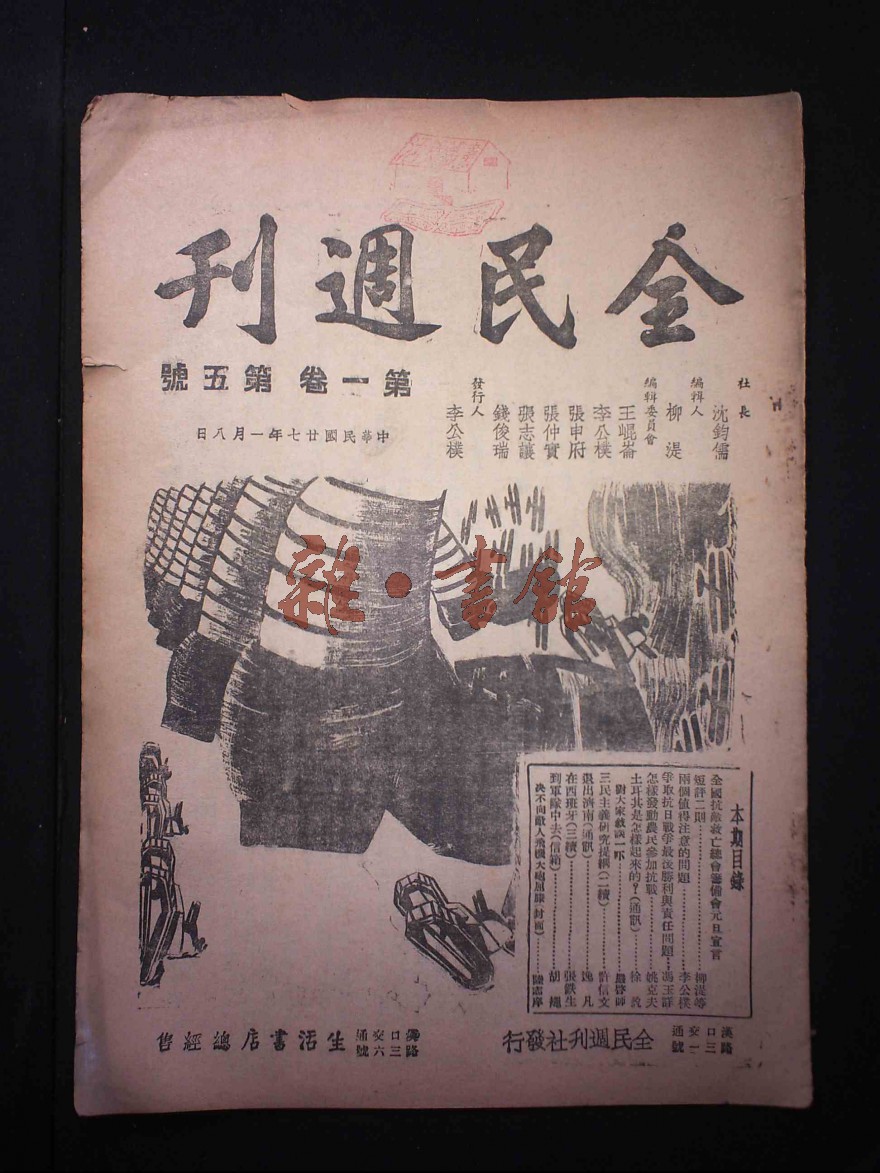 全民週刊
第一卷 第五號
中華民國廿七年一月八日
社長
沈鈞儒
編輯人
柳湜
編輯委員會
王崐崙
李公樸
張申府
張仲實
張志讓
錢俊瑞
發行人
李公樸
雜·書館
本期目錄
全國抗敵救亡總會籌備會元旦宣言
短評二則………柳湜等
兩個值得注意的問題………李公樸
爭取抗日戰爭最後勝利與責任問題………馮玉祥
怎樣發動農民參加抗戰………姚克夫
土耳其是怎樣起來的？(通訊)………徐敦
對大家敘談一吓………嚴啓師
三民主義研究提綱(二續)………許信文
退出濟南(通訊)………逸凡
在西班牙(三續)………張鐵生
到軍隊中去(信箱)………胡繩
決不向敵人飛機大砲屈膝(封面)………陸志庠
漢口交通路三一號
全民週刊社發行
漢口交通路三六號
生活書店總經售